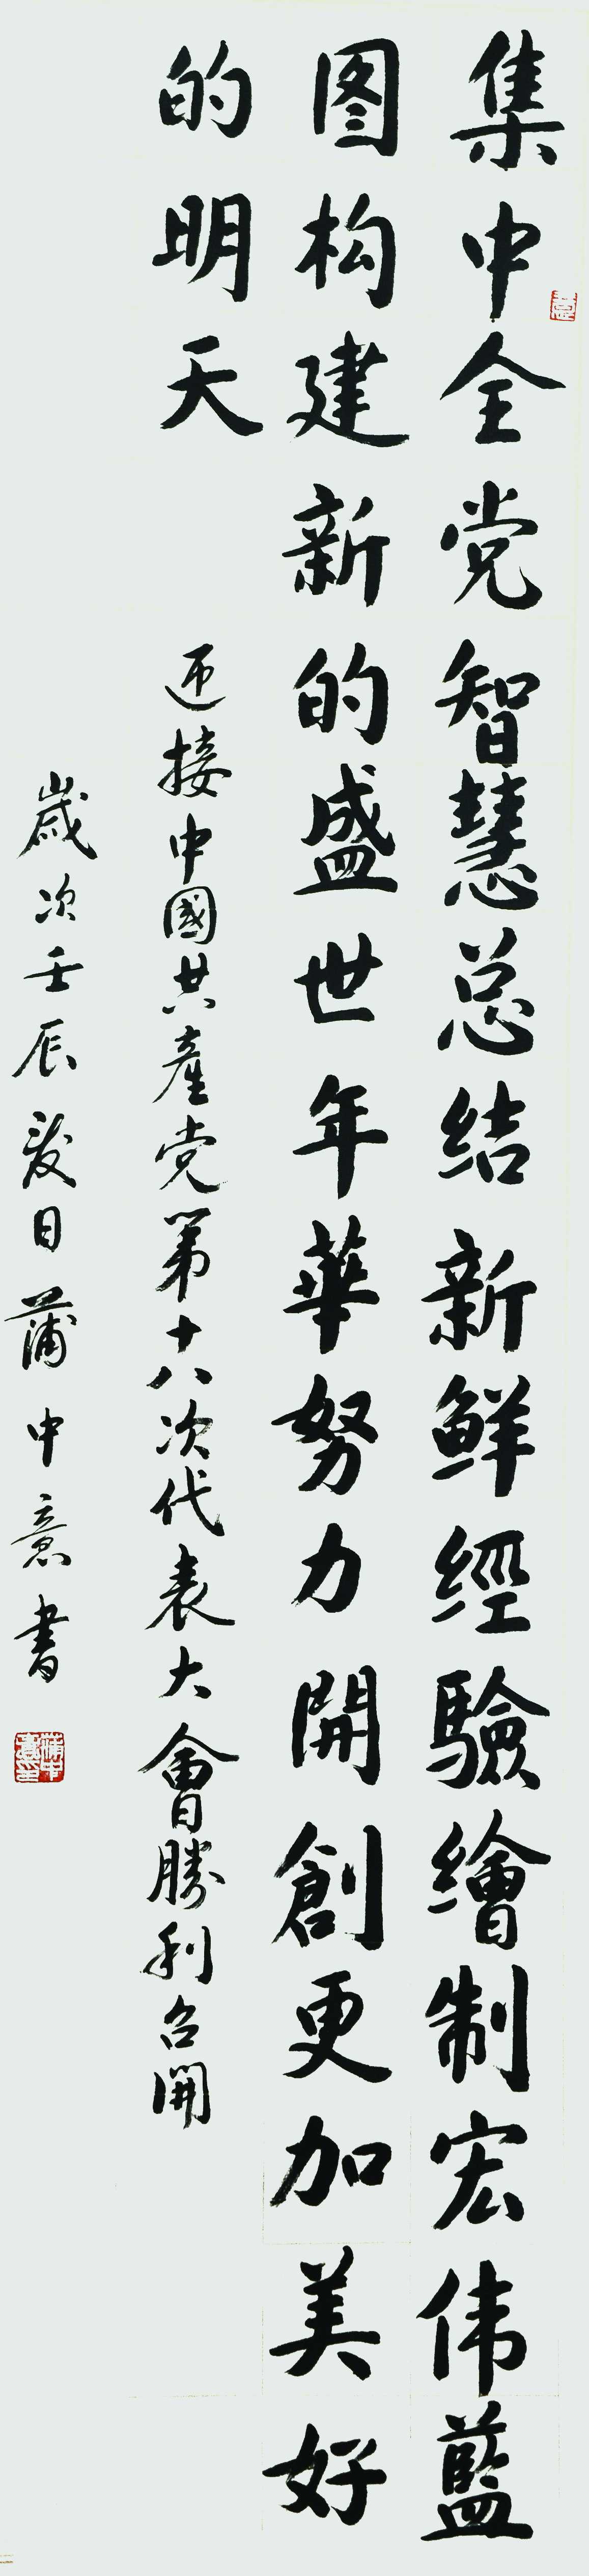 集中全党智慧总结新鲜經驗繪制宏伟藍
图构建新的盛世年華努力開創更加美好
的明天
迎接中國共產党第十八次代表大會勝利召開
歲次壬辰夏日蒲中意書
蒲中意印